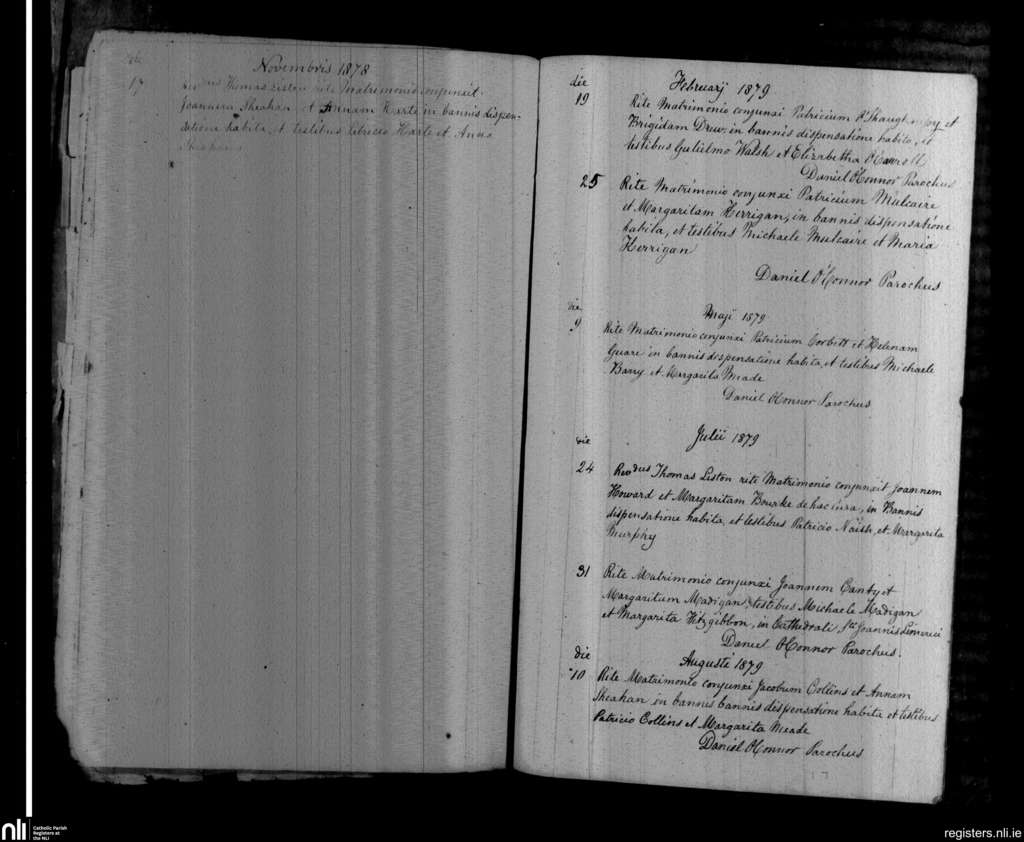 die
Novembris 1878
17 Rev dus Thomas Liston rite Matrimonio conjunxit
Joannem Sheahan et Annam Harte in bannis dispen-
satione habita, et testibus Patricio Harte et Anna
Sheahan
die
Februarij 1879
19 Rite Matrimonio conjunxi Patricium O'Shaughnessy et
Brigidam Drew, in bannis dispensatione habita, et
testibus Gulielmo Walsh et Elizabetha O'Carroll
Daniel O'Connor Parochus
25 Rite Matrimonio conjunxi Patricium Mulcaire
et Margaritam Herrigan, in bannis dispensatione
habita, et testibus Michaele Mulcaire et Maria
Herrigan
Daniel O'Connor Parochus
die
Maji 1879
9 Rite Matrimonio conjunxi Patricium Corbett et Helenam
Guare in bannis dispensatione habita, et testibus Michaele
Barry et Margarita Meade
Daniel O'Connor Parochus
die
Julii 1879
24 Rev dus Thomas Liston rite Matrimonio conjunxit Joannem
Howard et Margaritam Bourke de hac, in Bannis
dispensatione habita, et testibus Patricio Naish, et Margarita
Murphy
31 Rite Matrimonio conjunxi Joannem Canty et
Margaritam Madigan, testibus Michaele Madigan
et Margarita Fitzgibbon, in Cathedrali, Sti Joannis Limerici
Daniel O'Connor Parochus.
die
Augusti 1879
10 Rite Matrimonio conjunxi Jacobum Collins et Annam
Sheahan in bannis bannis dispensatione habita et testibus
Patricio Collins et Margarita Meade
Daniel O'Connor Parochus
nli Catholic Parish
Registers at
the NLI
registers.nli.ie